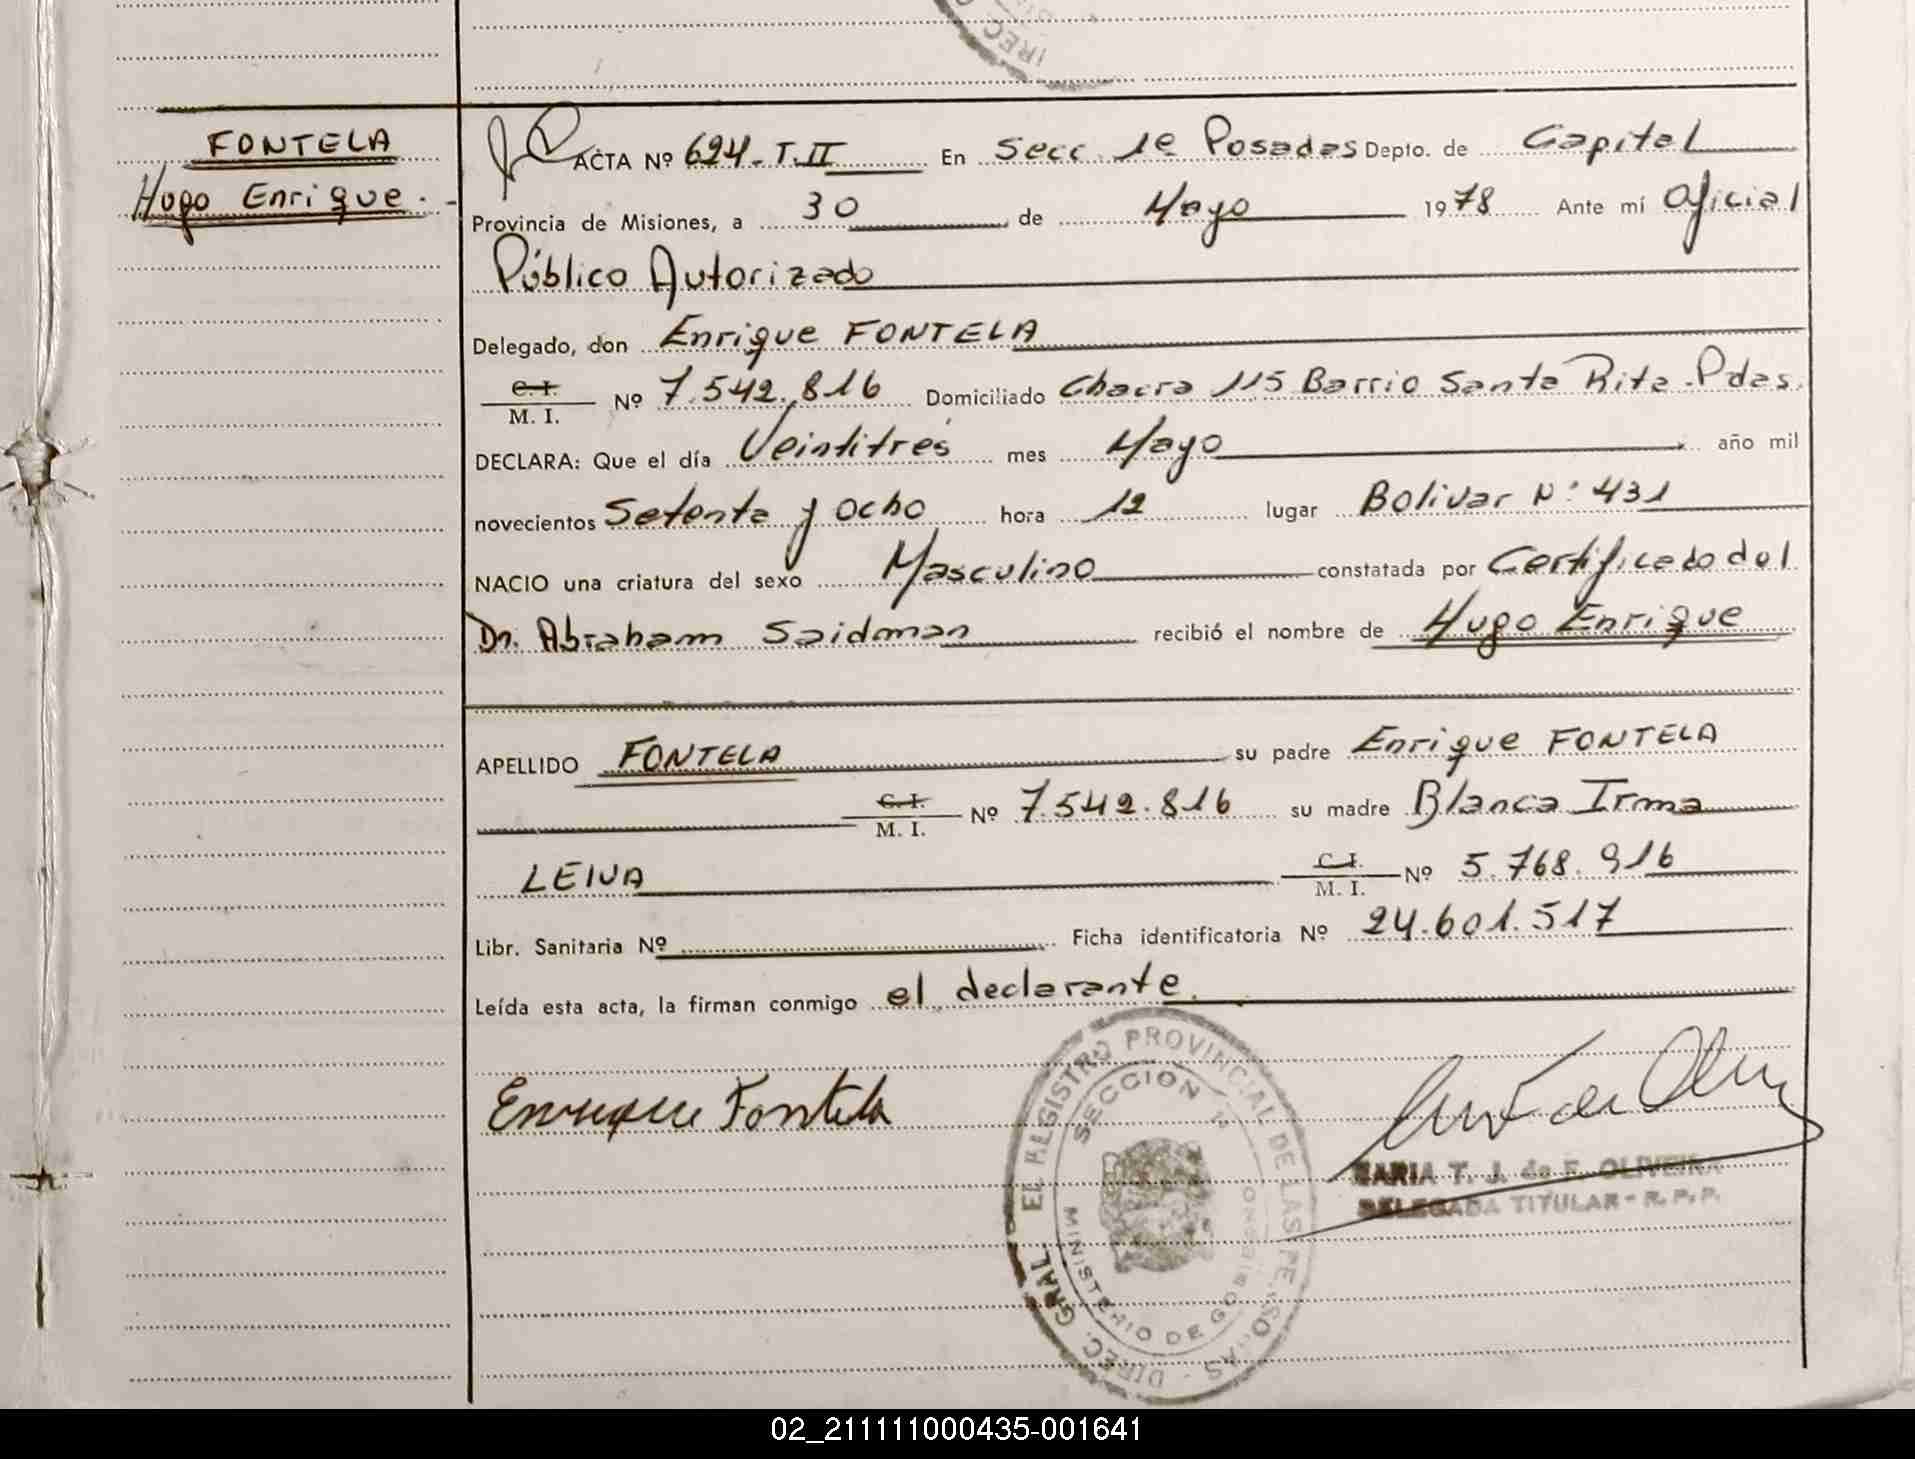 FONTELA
Hugo Enrique.-
ACTA Nº 694-T.II En Secc. 1e Posadas Depto. de Capital
Provincia de Misiones, a 30 de Mayo 1978 Ante mí Oficial
Público Autorizado
Delegado, don Enrique FONTELA
C.I. / M.I. Nº 7.542.816 Domiciliado Chacra 115 Barrio Santa Rita-Pdas.
DECLARA: Que el día Veintitrés mes Mayo año mil
novecientos Setenta y Ocho hora 12 lugar Bolivar Nº 431
NACIO una criatura del sexo Masculino constatada por Certificado del
Dr. Abraham Saidman recibió el nombre de Hugo Enrique
APELLIDO FONTELA su padre Enrique FONTELA
C.I. / M.I. Nº 7.542.816 su madre Blanca Irma
LEIVA C.I. / M.I. Nº 5.768.916
Libr. Sanitaria Nº Ficha identificatoria Nº 24.601.517
Leída esta acta, la firman conmigo el declarante.
Enrique Fontela
DIREC. GRAL EL REGISTRO PROVINCIAL DE LAS PERSONAS
SECCION 1ª
MINISTERIO DE GOBIERNO
MARIA T. J. de F. OLIVEIRA
DELEGADA TITULAR - R. P. P.
02_211111000435-001641